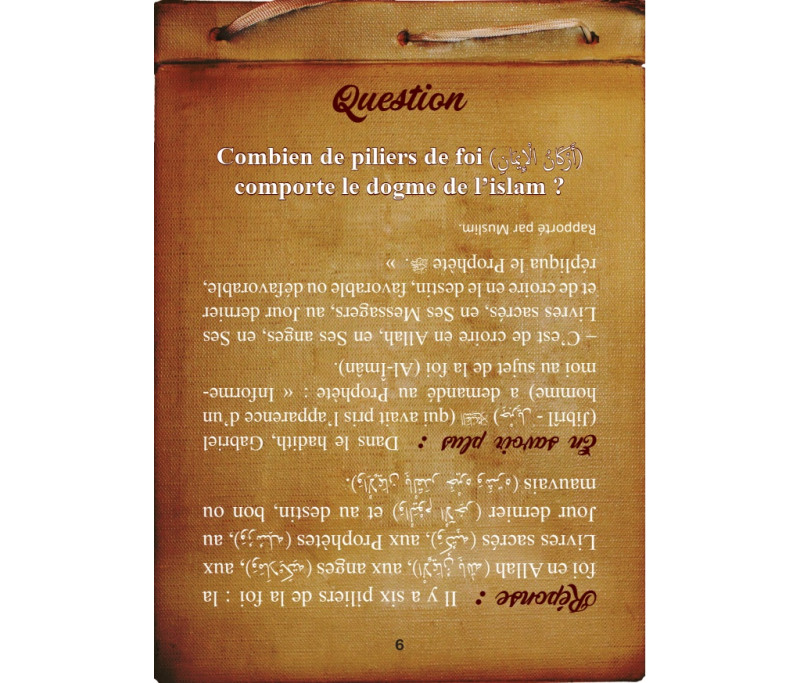 Question
Combien de piliers de foi (أَرْكَانُ الْإِيمَانِ)
comporte le dogme de l’islam ?
Réponse : Il y a six piliers de la foi : la
foi en Allah (وَالْإِيمَانُ بِاللهِ), aux anges (وَمَلَائِكَتِهِ), aux
Livres sacrés (وَكُتُبِهِ), aux Prophètes (وَرُسُلِهِ), au
Jour dernier (وَالْيَوْمِ الْآخِرِ) et au destin, bon ou
mauvais (وَالْإِيمَانُ بِالْقَدَرِ خَيْرِهِ وَشَرِّهِ).
En savoir plus : Dans le hadith, Gabriel
(Jibrîl - جِبْرِيل) (qui avait pris l’apparence d’un
homme) a demandé au Prophète : « Informe-
moi au sujet de la foi (Al-Îmân).
– C’est de croire en Allah, en Ses anges, en Ses
Livres sacrés, en Ses Messagers, au Jour dernier
et de croire en le destin, favorable ou défavorable,
répliqua le Prophète ﷺ. »
Rapporté par Muslim.
6